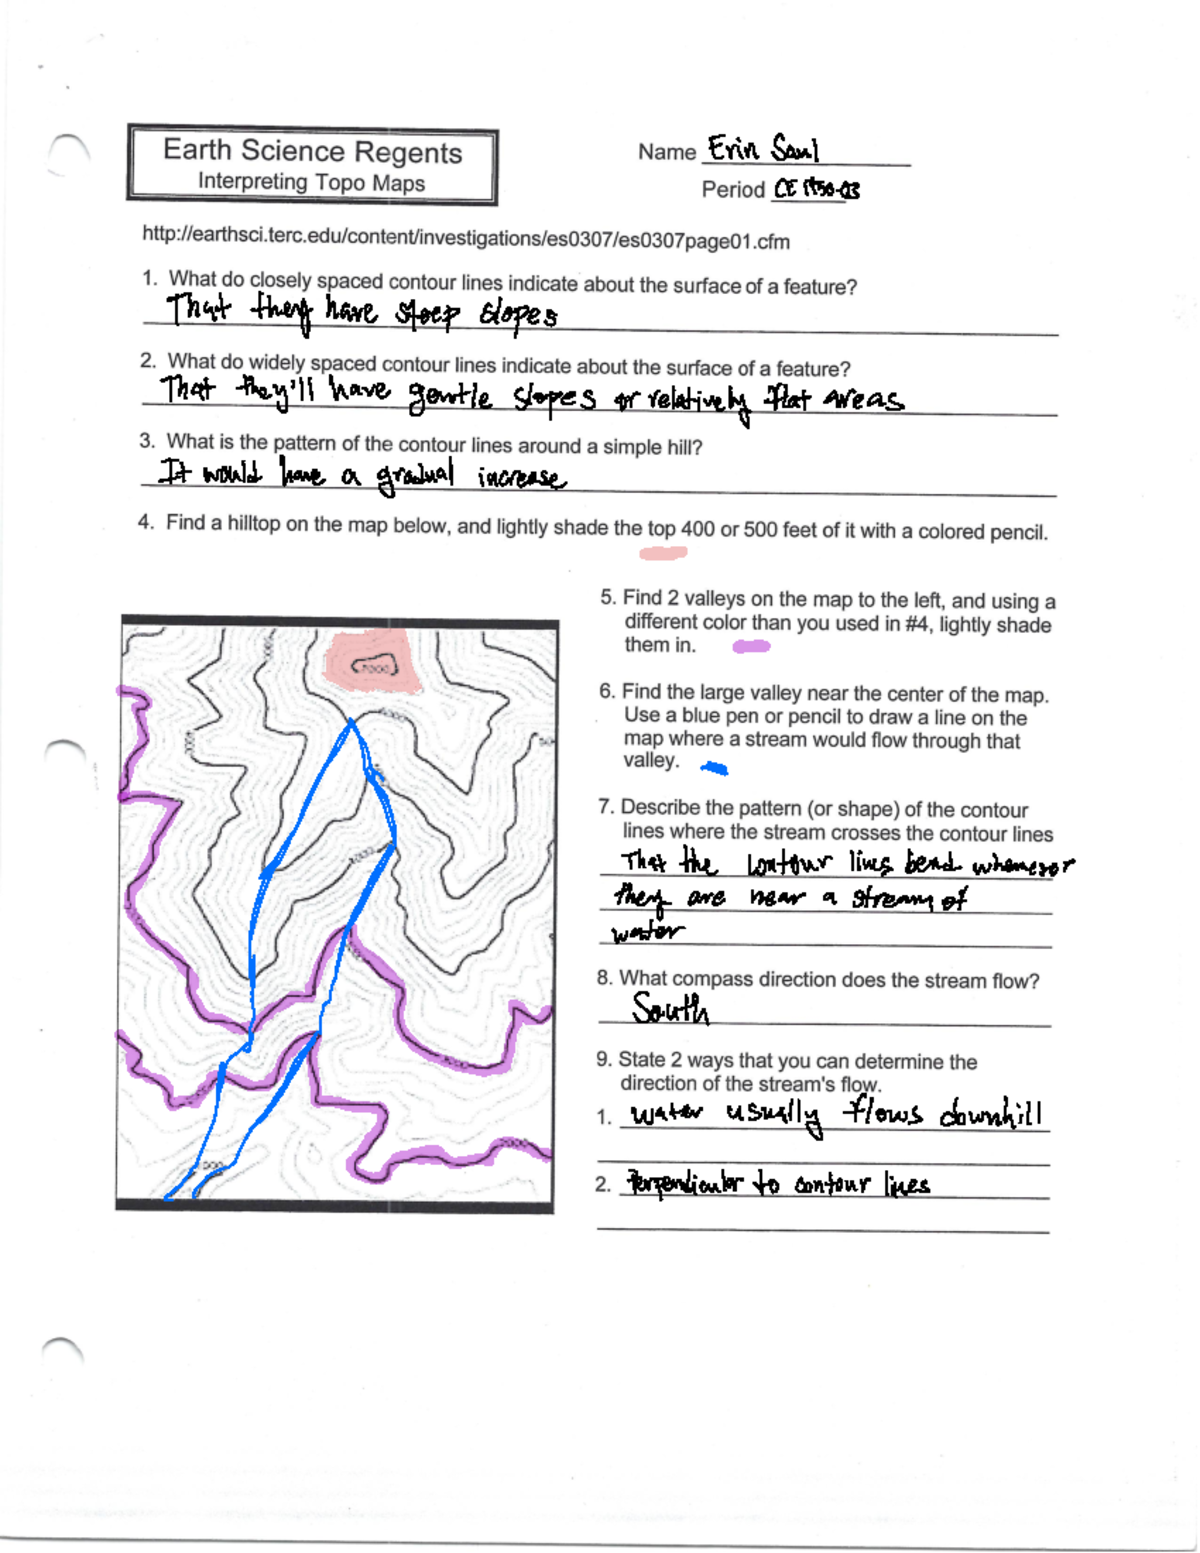 Earth Science Regents
Interpreting Topo Maps
Name Erin Saul
Period CE 1450-03
http://earthsci.terc.edu/content/investigations/es0307/es0307page01.cfm
1. What do closely spaced contour lines indicate about the surface of a feature?
That they have steep slopes
2. What do widely spaced contour lines indicate about the surface of a feature?
That they'll have gentle slopes or relatively flat areas
3. What is the pattern of the contour lines around a simple hill?
It would have a gradual increase
4. Find a hilltop on the map below, and lightly shade the top 400 or 500 feet of it with a colored pencil.
5. Find 2 valleys on the map to the left, and using a
different color than you used in #4, lightly shade
them in.
6. Find the large valley near the center of the map.
Use a blue pen or pencil to draw a line on the
map where a stream would flow through that
valley.
7. Describe the pattern (or shape) of the contour
lines where the stream crosses the contour lines
That the contour lines bend whenever
they are near a stream of
water
8. What compass direction does the stream flow?
South
9. State 2 ways that you can determine the
direction of the stream's flow.
1. water usually flows downhill
2. Perpendicular to contour lines